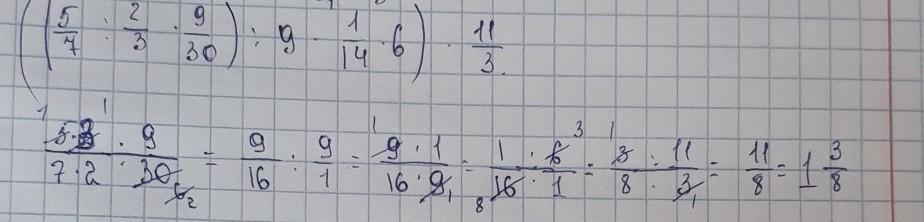 ((5/7 : 2/3 · 9/30) : 9 · 1/14 · 6) · 11/3
5·3 · 9 / 7·2 · 30 = 9/16 : 9/1 = 9 · 1 / 16 · 9 = 1 · 6 / 16 · 1 = 3 · 11 / 8 · 3 = 11/8 = 1 3/8